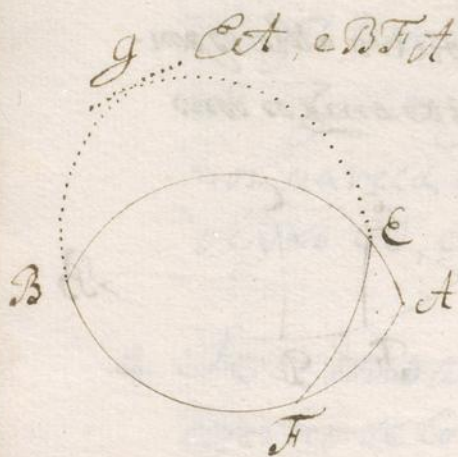 g EA, e BFA
E
B
A
F